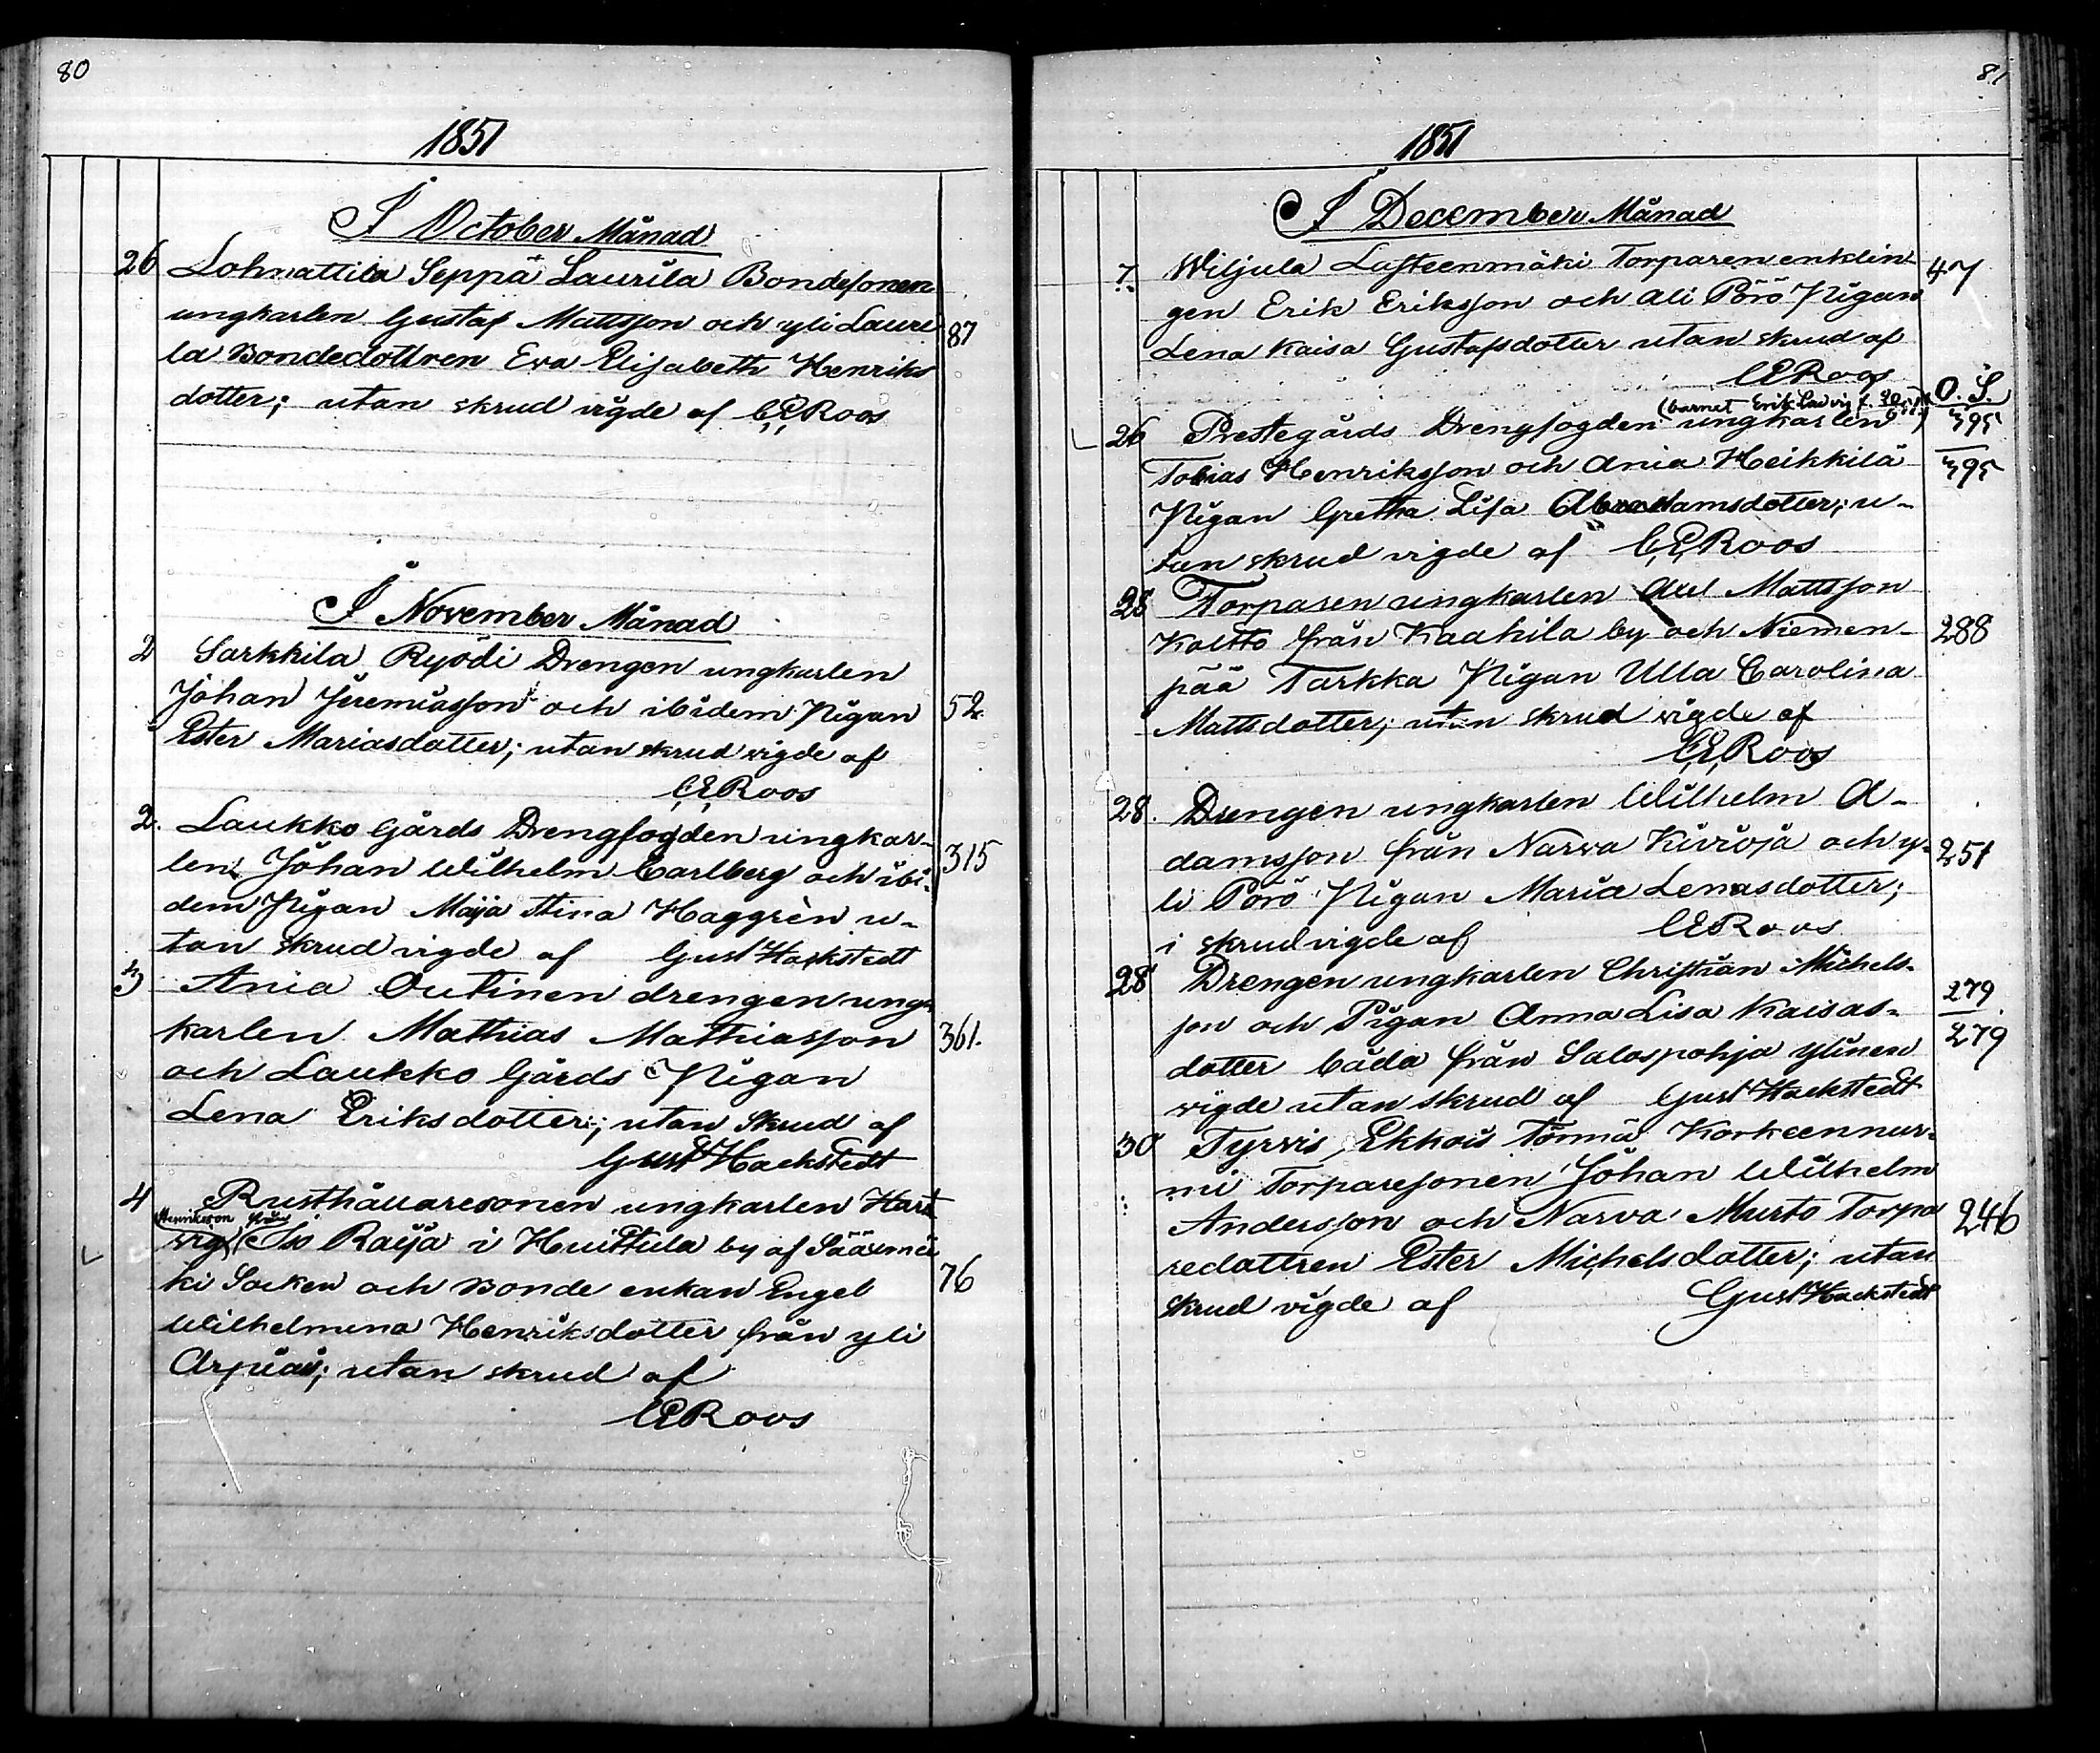 80
1851
I October Månad
26 Lohnattila Seppä Laurila Bondesonen
ungkarlen Gustaf Mattsson och yli Lauri
la Bondedottren Eva Elisabeth Henriks 87
dotter; utan skrud vigde af C.E.Roos
I November Månad
2 Sarkkila Ryödi Drengen ungkarlen
Johan Jeremiasson och ibidem Pigan 52.
Ester Mariasdotter; utan skrud wigde af
C.E.Roos
2. Laukko Gårds Drengfogden ungkar-
len Johan Wilhelm Carlberg och ibi- 315
dem Pigan Maija Stina Haggrèn u-
tan skrud vigde af Gust Hackstedt
3 Ania Outinen drengen ung-
karlen Mathias Mathiasson 361.
och Laukko Gårds Pigan
Lena Eriksdotter; utan Skrud af
Gust Hackstedt
4 Rusthållaresonen ungkarlen Hart
Henriksson från
wig Iso Raija i Huittula by af Sääxmä
ki Socken och Bonde enkan Engel 76
Wilhelmina Henriksdotter från yli
Arpiais; utan skrud af
CERoos
81
1851
I December Månad
7. Wiljula Lasteenmäki Torparen enklin- 47
gen Erik Eriksson och ali Pörö Pigan
Lena Kaisa Gustafsdotter utan skrud af
CERoos
(barnet Erik Ludvig f. O. S.
26 Prestegårds Drengfogden ungkarlen 395
Tobias Henriksson och Ania Heikkilä 395
Pigan Gretha Lisa Abrahamsdotter; u-
tan skrud vigde af C.E.Roos
28 Torparen ungkarlen Axel Mattsson
Koltto från Kaakila by och Niemen- 288
pää Tarkka Pigan Ulla Carolina
Mattsdotter; utan skrud vigde af
C.E.Roos
28. Drengen ungkarlen Wilhelm A-
damsson från Narva Kivioja och y- 251
li Pörö Pigan Maria Lenasdotter;
i skrud vigde af CERoos
28 Drengen ungkarlen Christian Michels-
son och Pigan Anna Lisa Kaisas- 279
dotter båda från Salospohja Ylinen 279
wigde utan skrud af Gust Hackstedt
30 Tyrvis Ekkois Törmä Korkeennur-
mi Torparesonen Johan Wilhelm
Andersson och Narva Murto Torpa 246
redottren Ester Michelsdotter; utan
skrud vigde af Gust Hackstedt